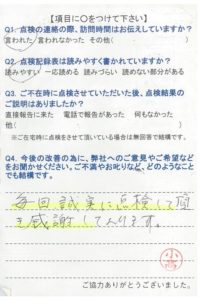 【項目に○をつけて下さい】
Q1. 点検の連絡の際、訪問時間はお伝えしていますか?
言われた 言われなかった その他( )
Q2. 点検記録表は読みやすく書かれていますか?
読みやすい 一応読める 読みづらい 読めない部分がある
Q3. ご不在時に点検させていただいた後、点検結果の
ご説明はありましたか?
直接報告に来た 電話で報告があった 何もなかった
他( )
※ご在宅時に点検をさせて頂いている場合は無回答で結構です。
Q4. 今後の改善の為に、弊社へのご意見やご希望など
をお聞かせください。ご不満やお叱りなど、どのようなこと
でも結構です。
毎回誠実に点検して頂
き感謝しております。
ご協力ありがとうございました。